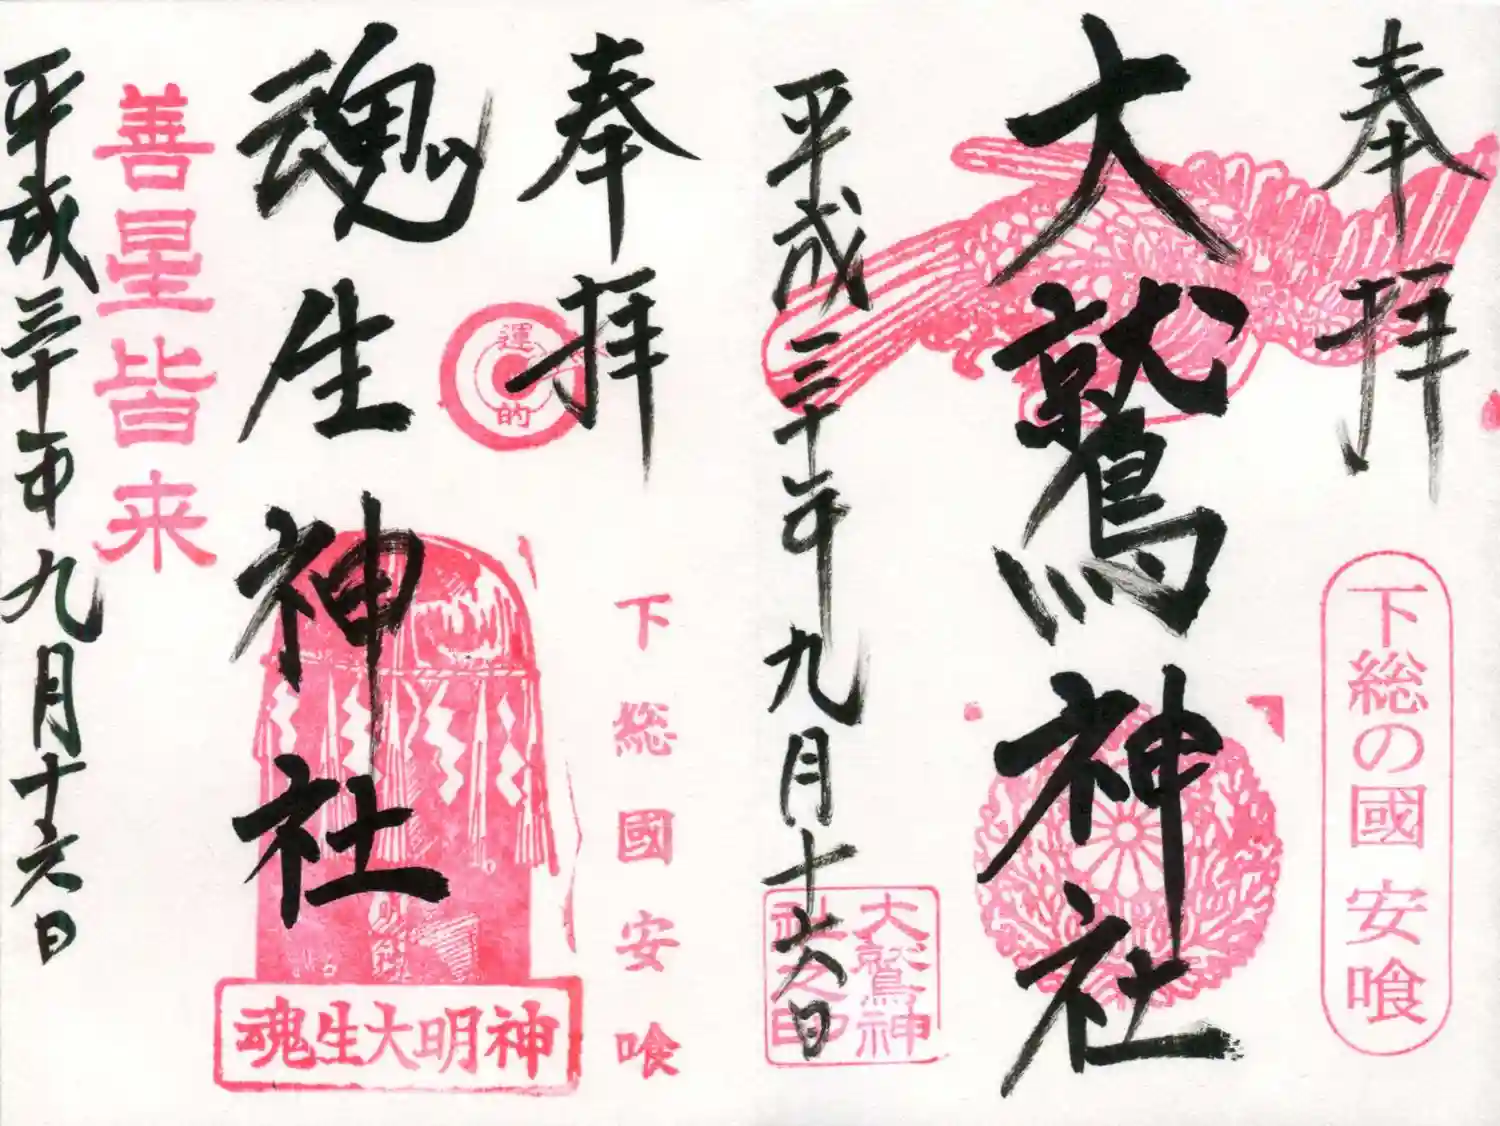 奉拝
下総の國 安喰
大鷲神社
大鷲神
社之印
平成三十年九月十六日
奉拝
運的
下総國安喰
魂生神社
神明大生魂
善星皆来
平成三十年九月十六日